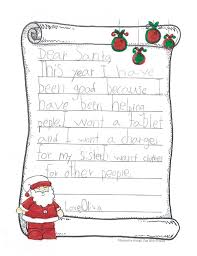 Dear Santa,
This year I have
been good because I
have been helping
peple I want a tablet
and I want a charger
for my sister I want clothes
for other people.
Love Olivia